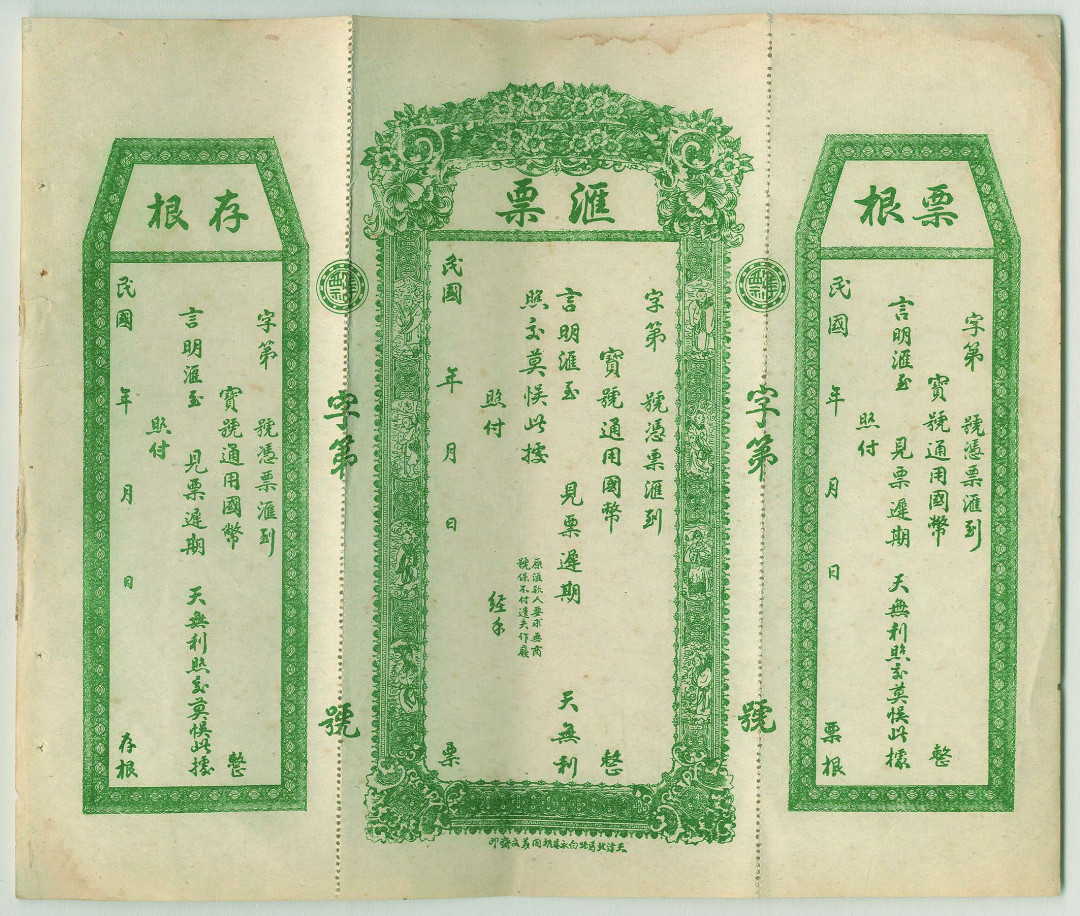 票根
字第 號憑票滙到
寶號通用國幣 整
言明滙至 見票遲期 天無利照交莫悞此據
照付
民國 年 月 日 票根
字第 號
滙票
字第 號憑票滙到
寶號通用國幣 整
言明滙至 見票遲期 天無利
照交莫悞此據
原滙款人要求無商
號保不付遺失作廢
照付 經手
民國 年 月 日 票
字第 號
存根
字第 號憑票滙到
寶號通用國幣 整
言明滙至 見票遲期 天無利照交莫悞此據
照付
民國 年 月 日 存根